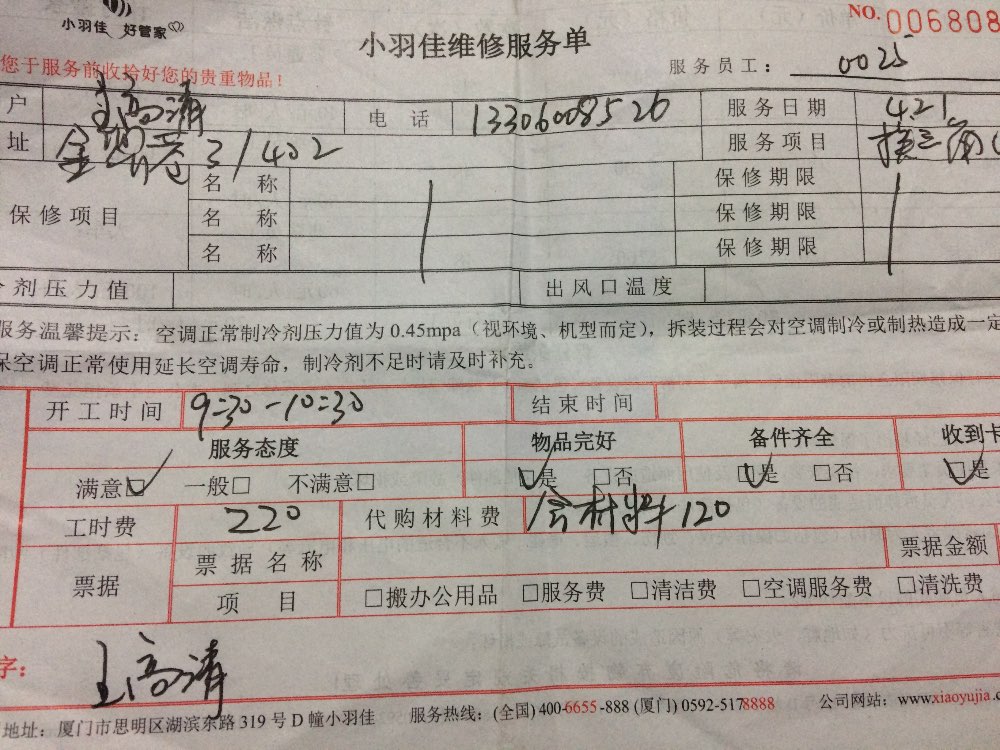 小羽佳 好管家
NO. 006808
小羽佳维修服务单
服务员工: 0025
您于服务前收拾好您的贵重物品!
户 王高清 电话 13306008526 服务日期 4.21
址 3/402 服务项目 换三角
保修项目 名称 保修期限
名称 保修期限
名称 保修期限
剂压力值 出风口温度
服务温馨提示: 空调正常制冷剂压力值为 0.45mpa (视环境、机型而定), 拆装过程会对空调制冷或制热造成一定
保空调正常使用延长空调寿命, 制冷剂不足时请及时补充。
开工时间 9:30-10:30 结束时间
服务态度 物品完好 备件齐全 收到卡
满意□ 一般□ 不满意□ □是 □否 □是 □否 □是
工时费 220 代购材料费 含材料120
票据 票据名称 票据金额
项目 □搬办公用品 □服务费 □清洁费 □空调服务费 □清洗费
字: 王高清
地址: 厦门市思明区湖滨东路 319 号 D 幢小羽佳 服务热线: (全国) 400-6655-888 (厦门) 0592-5178888 公司网站: www.xiaoyujia.c